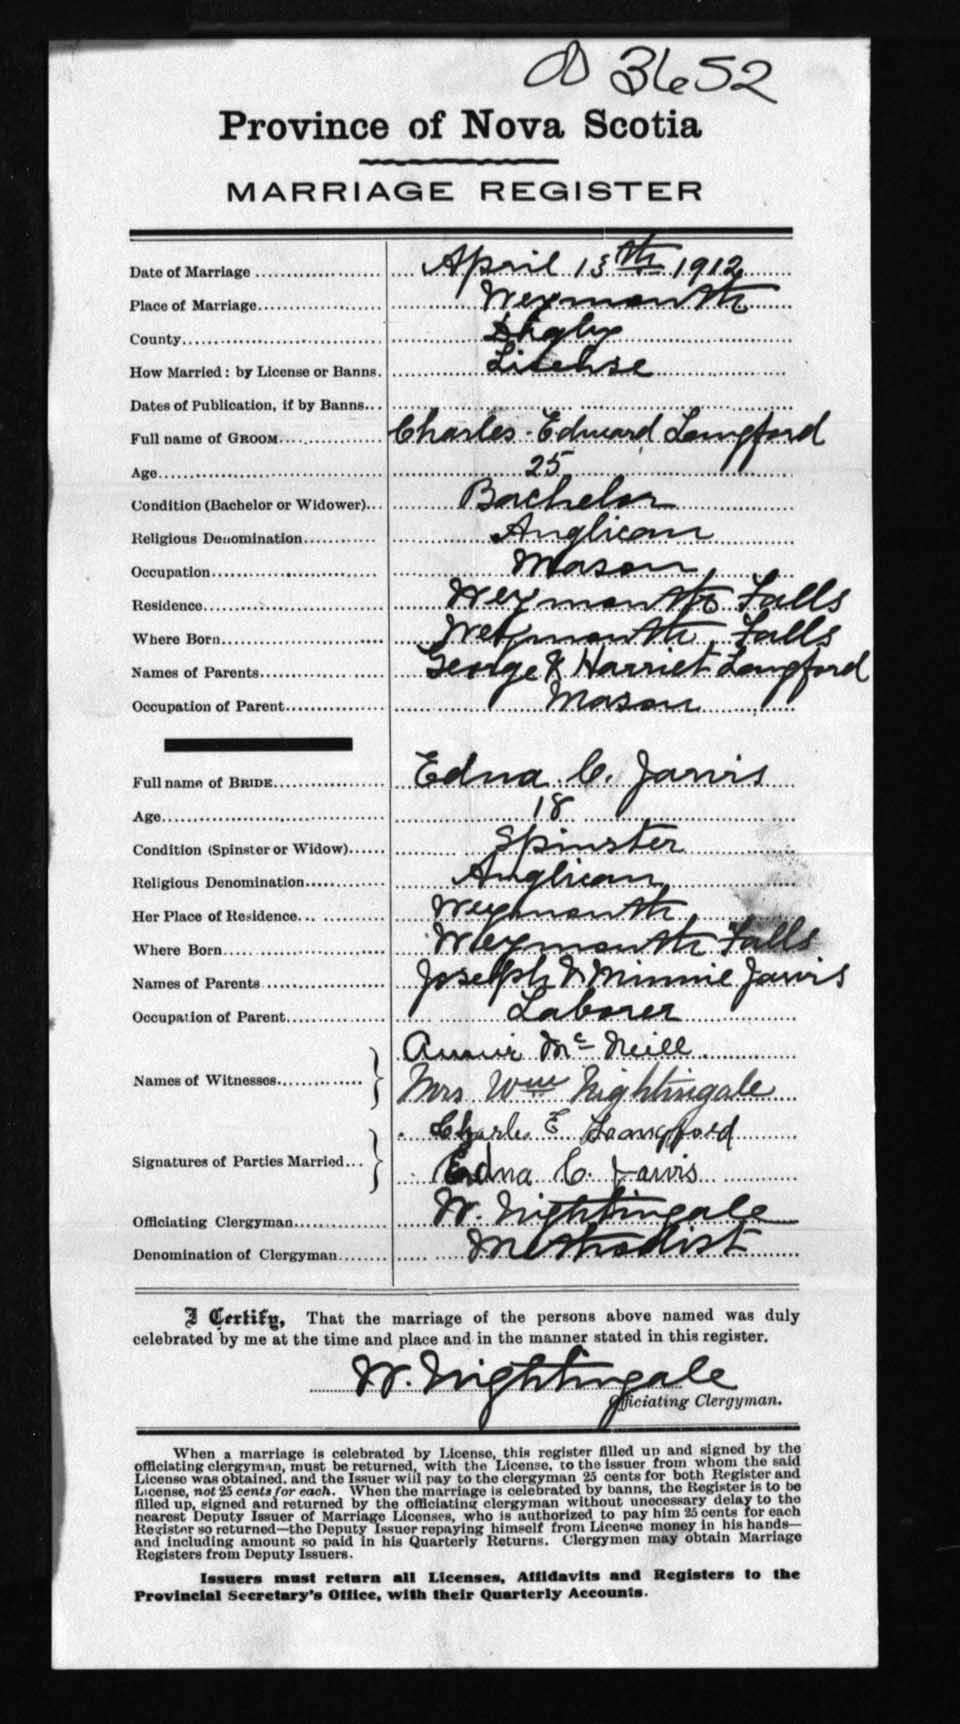 3652
Province of Nova Scotia
MARRIAGE REGISTER
Date of Marriage April 13th 1912
Place of Marriage Weymouth
County Digby
How Married: by License or Banns. License
Dates of Publication, if by Banns
Full name of GROOM Charles Edward Langford
Age 25
Condition (Bachelor or Widower) Bachelor
Religious Denomination Anglican
Occupation Mason
Residence Weymouth Falls
Where Born Weymouth Falls
Names of Parents George & Harriet Langford
Occupation of Parent Mason
Full name of BRIDE Edna C. Jarvis
Age 18
Condition (Spinster or Widow) Spinster
Religious Denomination Anglican
Her Place of Residence Weymouth
Where Born Weymouth Falls
Names of Parents Joseph & Minnie Jarvis
Occupation of Parent Laborer
Annie Mc Neill
Names of Witnesses
Mrs Wm Nightingale
Charles E Langford
Signatures of Parties Married
Edna C. Jarvis
Officiating Clergyman W. Nightingale
Denomination of Clergyman Methodist
I Certify, That the marriage of the persons above named was duly
celebrated by me at the time and place and in the manner stated in this register.
W. Nightingale
Officiating Clergyman.
When a marriage is celebrated by License, this register filled up and signed by the
officiating clergyman, must be returned, with the License, to the issuer from whom the said
License was obtained, and the Issuer will pay to the clergyman 25 cents for both Register and
License, not 25 cents for each. When the marriage is celebrated by banns, the Register is to be
filled up, signed and returned by the officiating clergyman without unnecessary delay to the
nearest Deputy Issuer of Marriage Licenses, who is authorized to pay him 25 cents for each
Register so returned—the Deputy Issuer repaying himself from License money in his hands—
and including amount so paid in his Quarterly Returns. Clergymen may obtain Marriage
Registers from Deputy Issuers.
Issuers must return all Licenses, Affidavits and Registers to the
Provincial Secretary's Office, with their Quarterly Accounts.